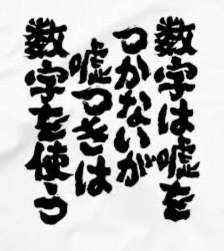 数字は嘘を
つかないが
嘘つきは
数字を使う